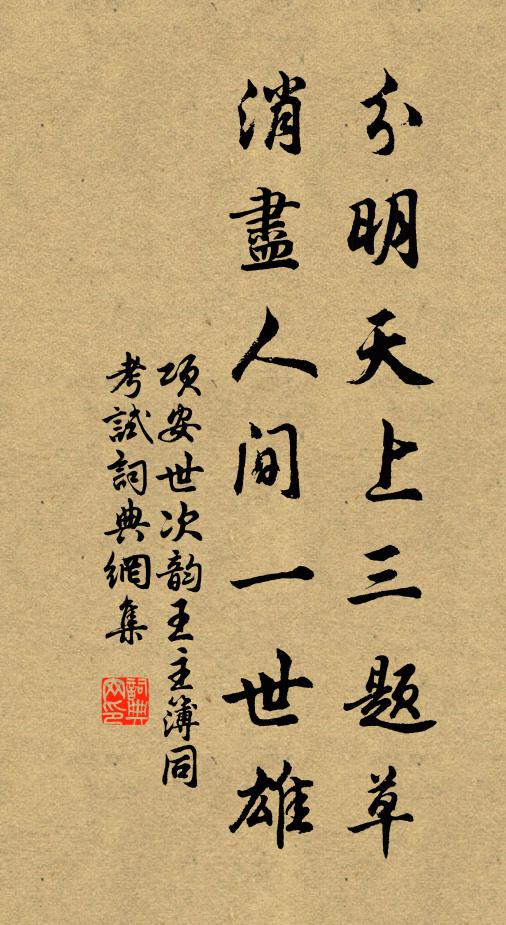 分明天上三題草
消盡人间一世雄
项安世次韵王主簿同
考試詞典網集
詞典
网印